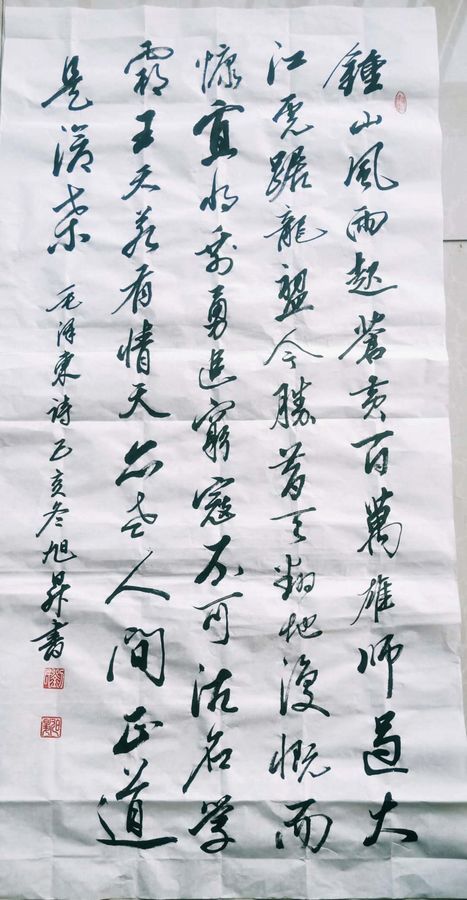 鍾山風雨起蒼黃百萬雄師過大
江虎踞龍盤今勝昔天翻地覆慨而
慷宜將剩勇追窮寇不可沽名學
霸王天若有情天亦老人間正道
是滄桑 毛澤東詩乙亥冬旭昇書